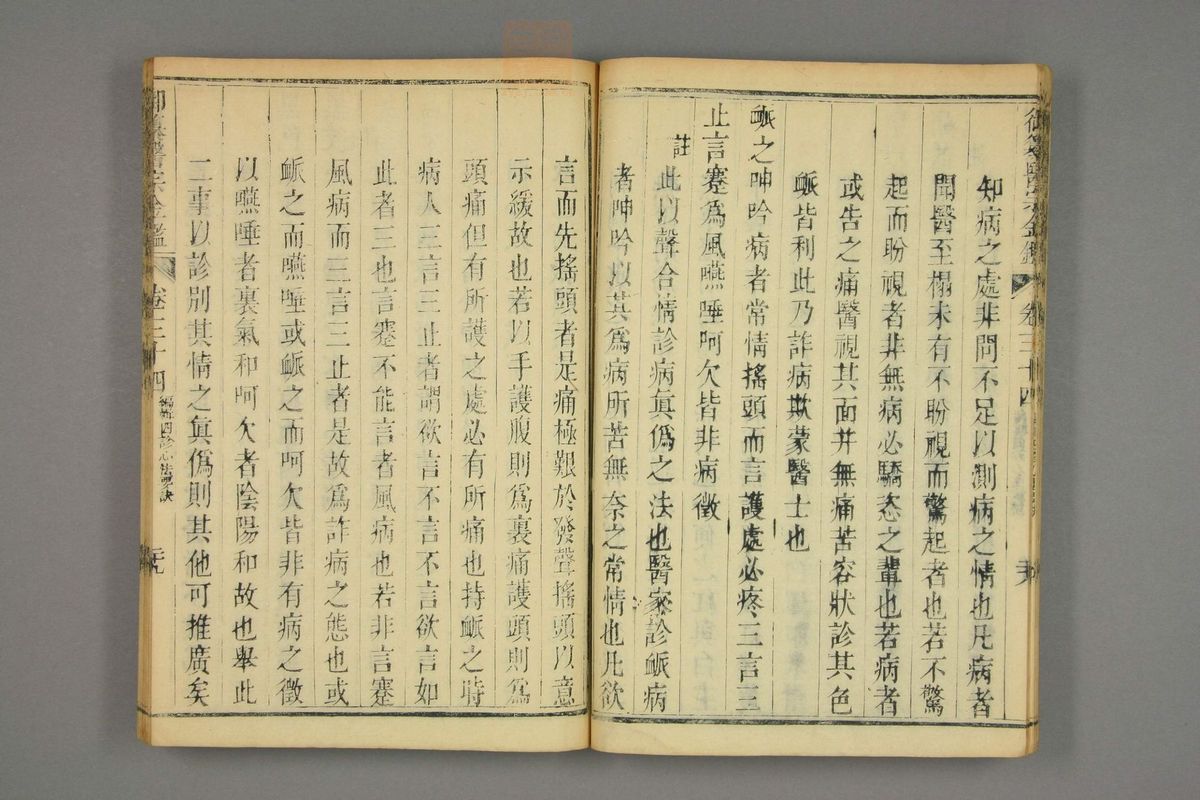 御纂醫宗金鑑 卷三十四
知病之處非問不足以測病之情也凡病者
聞醫至榻未有不盼視而驚起者也若不驚
起而盼視者非無病必驕恣之輩也若病者
或告之痛醫視其面幷無痛苦容狀診其色
脈皆利此乃詐病欺蒙醫士也
脈之呻吟病者常情搖頭而言護處必疼三言三
止言蹇為風嚥唾呵欠皆非病徵
註
此以聲合情診病眞僞之法也醫家診脈病
者呻吟以其為病所苦無奈之常情也凡欲
言而先搖頭者是痛極艱於發聲搖頭以意
示緩故也若以手護腹則為裏痛護頭則為
頭痛但有所護之處必有所痛也持脈之時
病人三言三止者謂欲言不言不言欲言如
此者三也言蹇不能言者風病也若非言蹇
風病而三言三止者是故為詐病之態也或
脈之而嚥唾或脈之而呵欠皆非有病之徵
以嚥唾者裏氣和呵欠者陰陽和故也舉此
二事以診別其情之眞僞則其他可推廣矣
御纂醫宗金鑑 卷三十四 編輯四診心法要訣